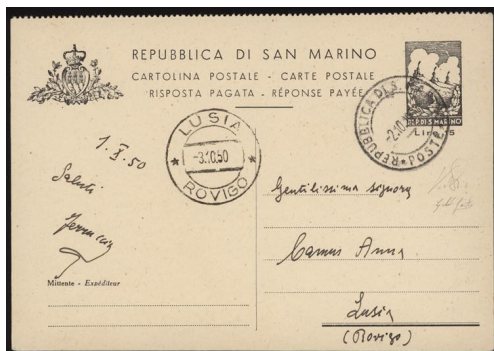 REPUBBLICA DI SAN MARINO
CARTOLINA POSTALE - CARTE POSTALE
RISPOSTA PAGATA - RÉPONSE PAYÉE
REP. DI S. MARINO
Lire
REPUBBLICA DI S.
-2.10
POSTE
LUSIA
-3.10.50
ROVIGO
1.X.50
Saluti
Mittente - Expéditeur
Gentilissima signora
Anna
Lusia
(Rovigo)